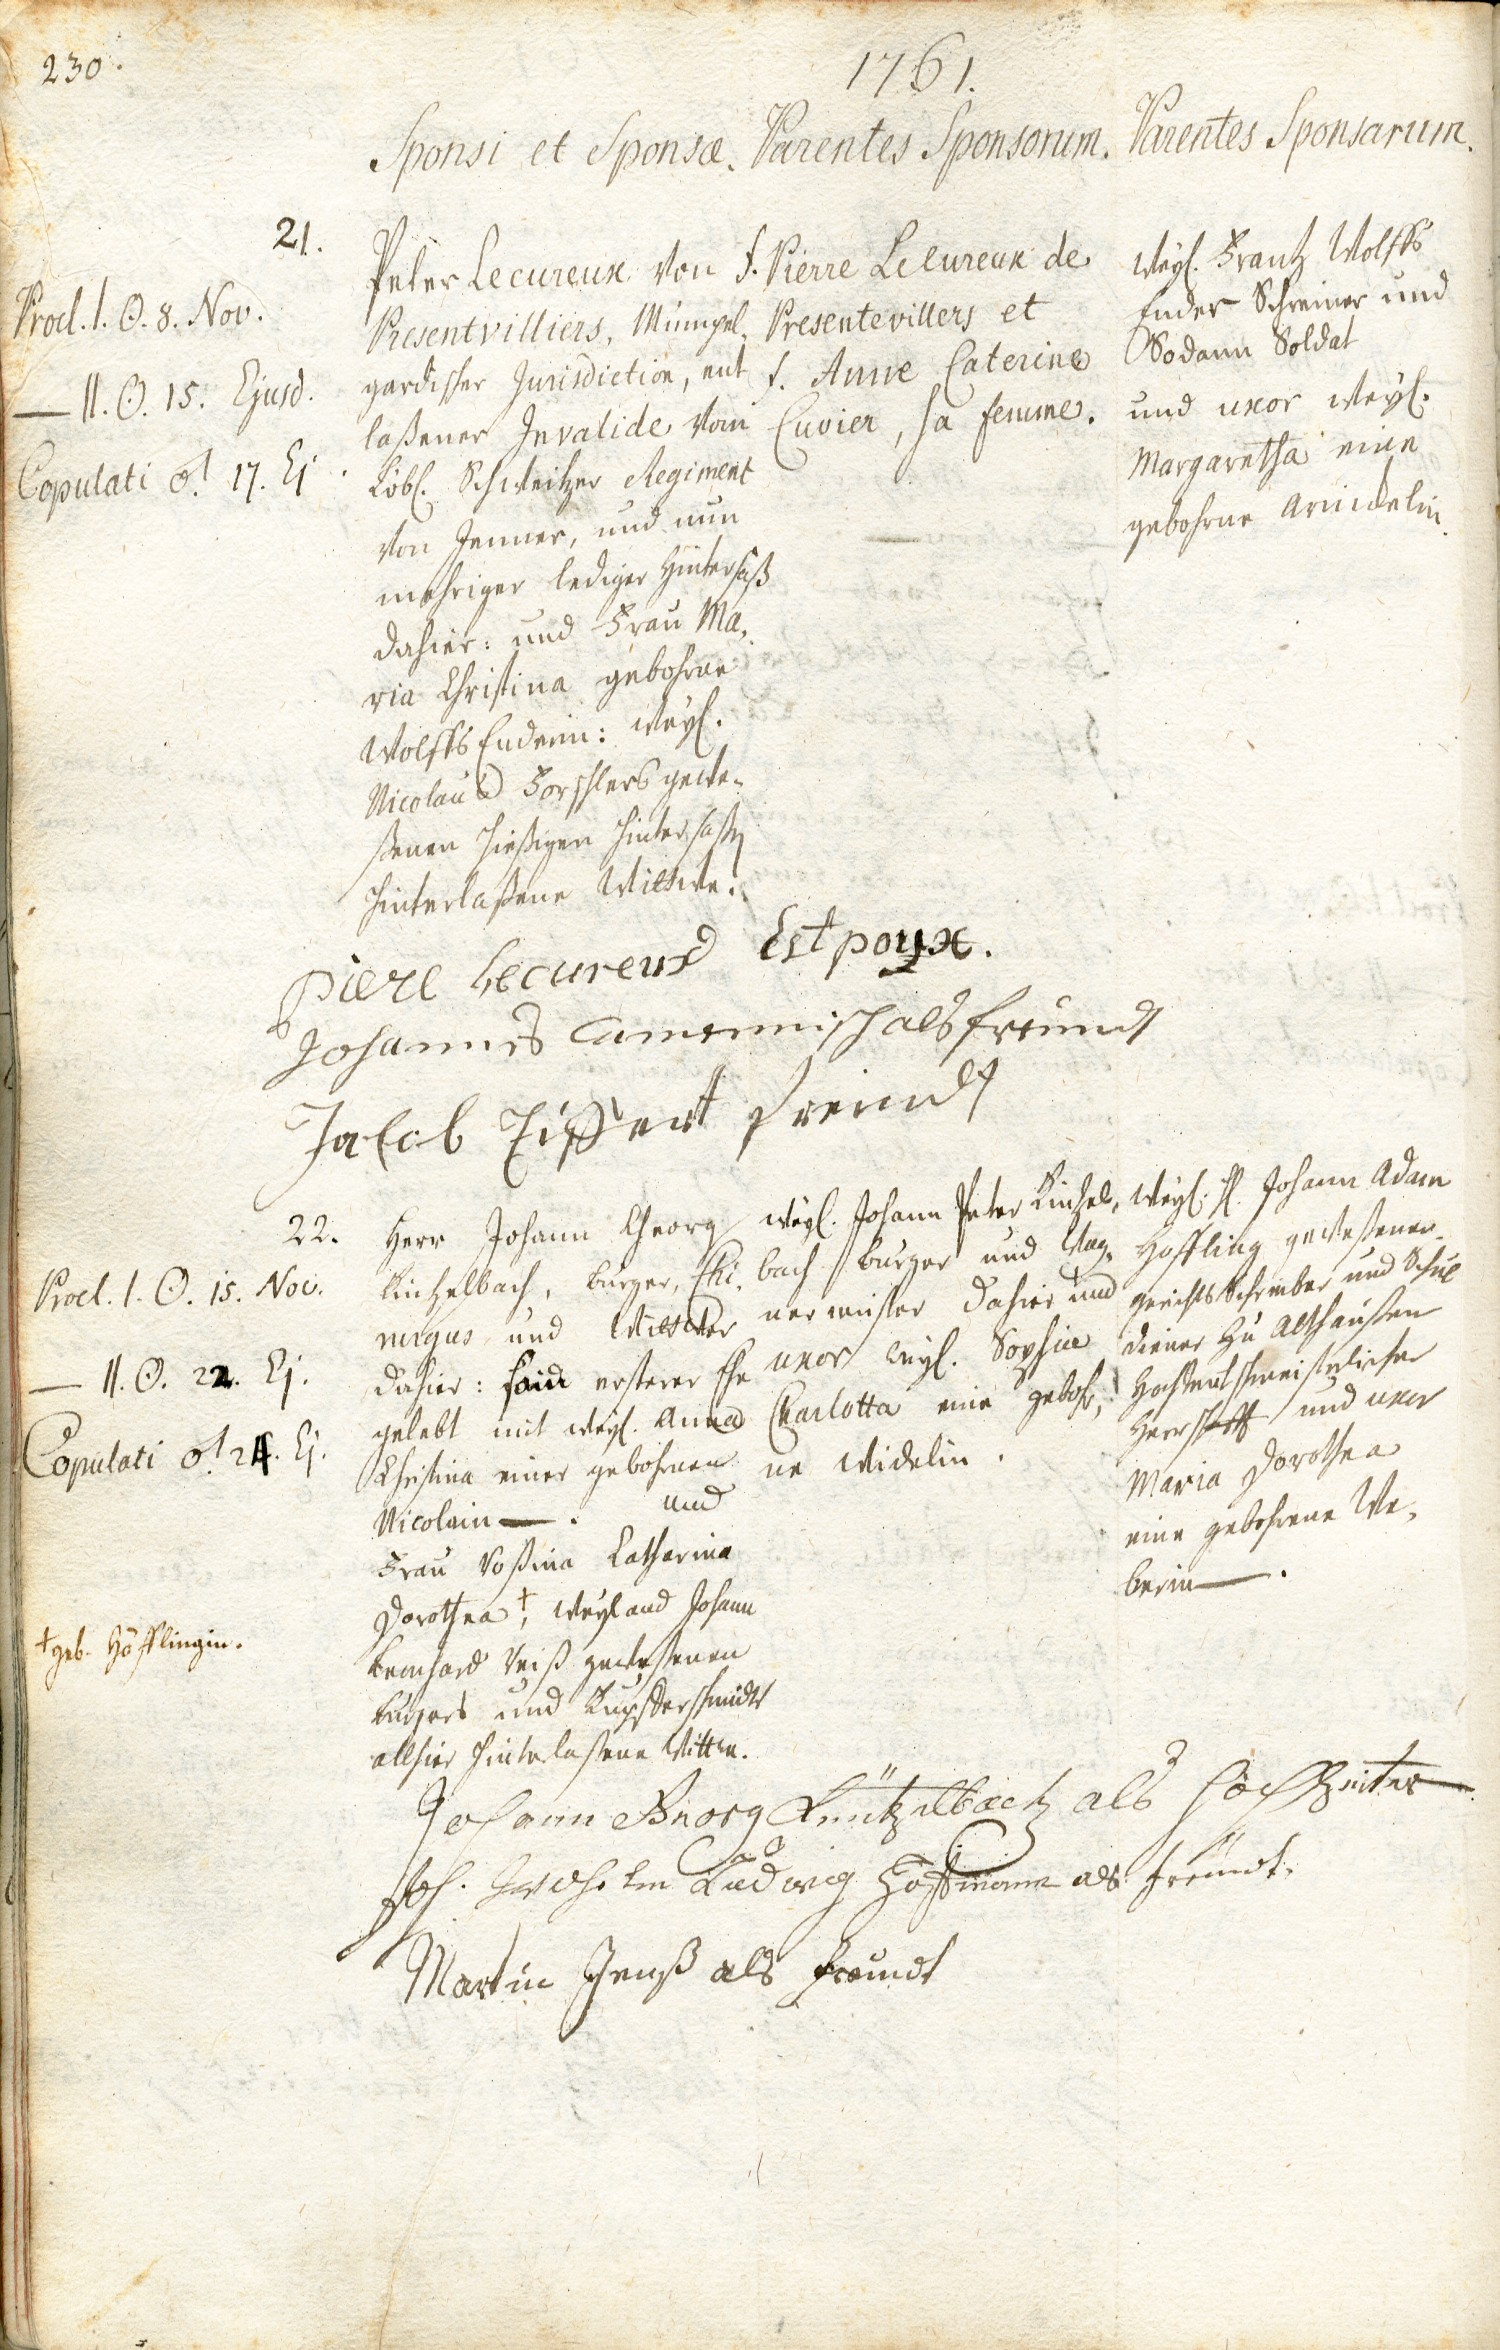 230.
1761.
Sponsi et Sponsæ. Parentes Sponsorum. Parentes Sponsarum.
21.
Procl. I. ☉. 8. Nov.
— II. ☉. 15. Ejusd.
Copulati ♂ 17. Ej.
Peter Lecureux von
Presentvilliers, Mümpel,
gardischer Jurisdiction, ent
laßener Invalide vom
Löbl. Schweitzer Regiment
von Jenner, und nun
mehriger lediger Hintersaß
dahier: und Frau Ma,
ria Christina gebohrne
Wolffs Enderin: weyl.
Nicolaus Forschlers gewe-
ßenen hießigen Hintersaßen
hinterlaßene Wittwe.
f. Pierre Lecureux de
Presentevillers et
f. Anne Caterine
Cuvier, sa femme.
weyl. Frantz Wolffs
Ender Schreiner und
Sodann Soldat
und uxor weyl.
Margaretha eine
gebohrne
piere Lecureux Estpoux.
Johannes als freundt
Jacob freundt
22.
Procl. I. ☉. 15. Nov.
— II. ☉. 22. Ej.
Copulati ♂ 24. Ej.
† geb. Höfflingin.
Herr Johann Georg
Kintzelbach, burger, Chi,
rurgus und Wittwer
dahier: so in ersterer Ehe
gelebt mit weyl. Anna
Christina einer gebohrnen
Nicolain —. und
Frau Roßina Catharina
Dorothea †, weyland Johann
Bernhard Reiß geweßenen
burgers und Kupfferschmidts
allhier hinterlaßene Wittwe.
weyl. Johann Peter Kinzel,
bach burger und Wag,
nermeister dahier und
uxor weyl. Sophia
Charlotta eine gebohr,
ne Widelin.
weyl. H. Johann Adam
Höffling geweßener
gerichtsschreiber und Schul
diener zu Althaußen
Hochteutschmeisterischer
Herrschafft und uxor
Maria Dorothea
eine gebohrene We,
berin —.
Johann Georg Küntzelbach als Hochzeiter
Joh. Ludwig Hoffmann als freundt.
Martin als freundt